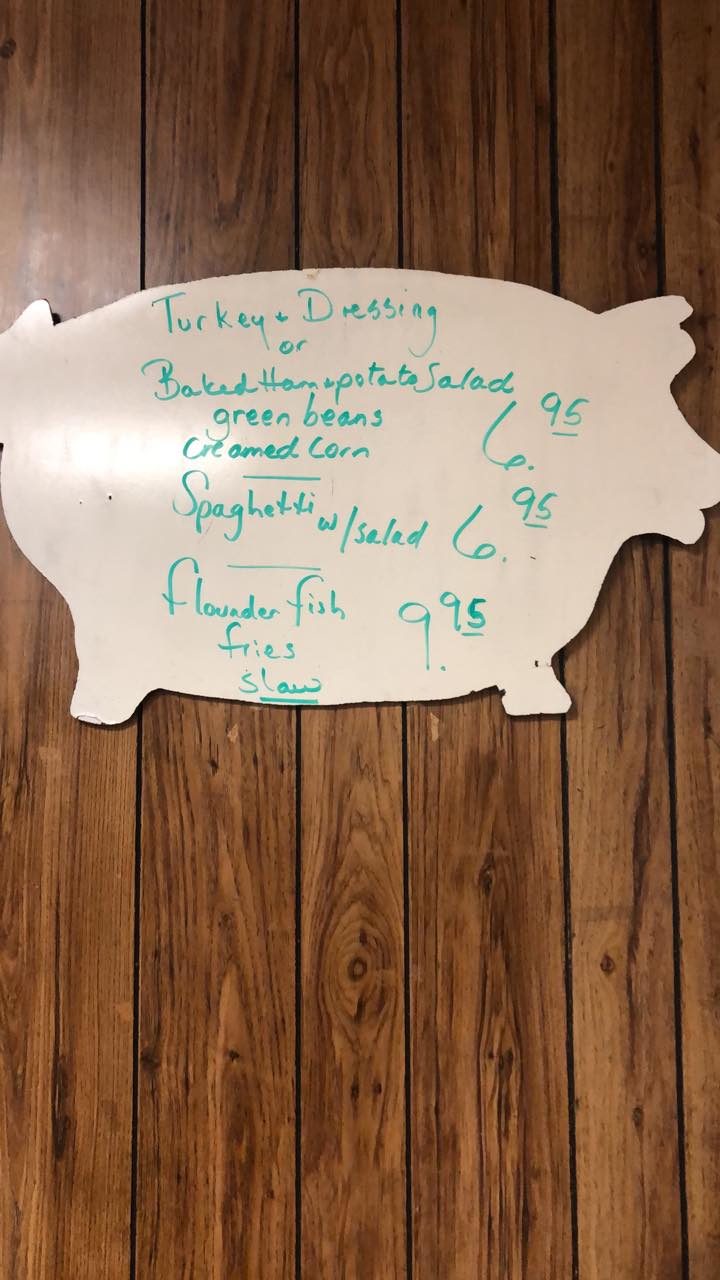 Turkey + Dressing
or
Baked Ham + potato Salad
green beans
creamed corn 6.95
Spaghetti w/salad 6.95
flounder fish 9.95
fries
slaw